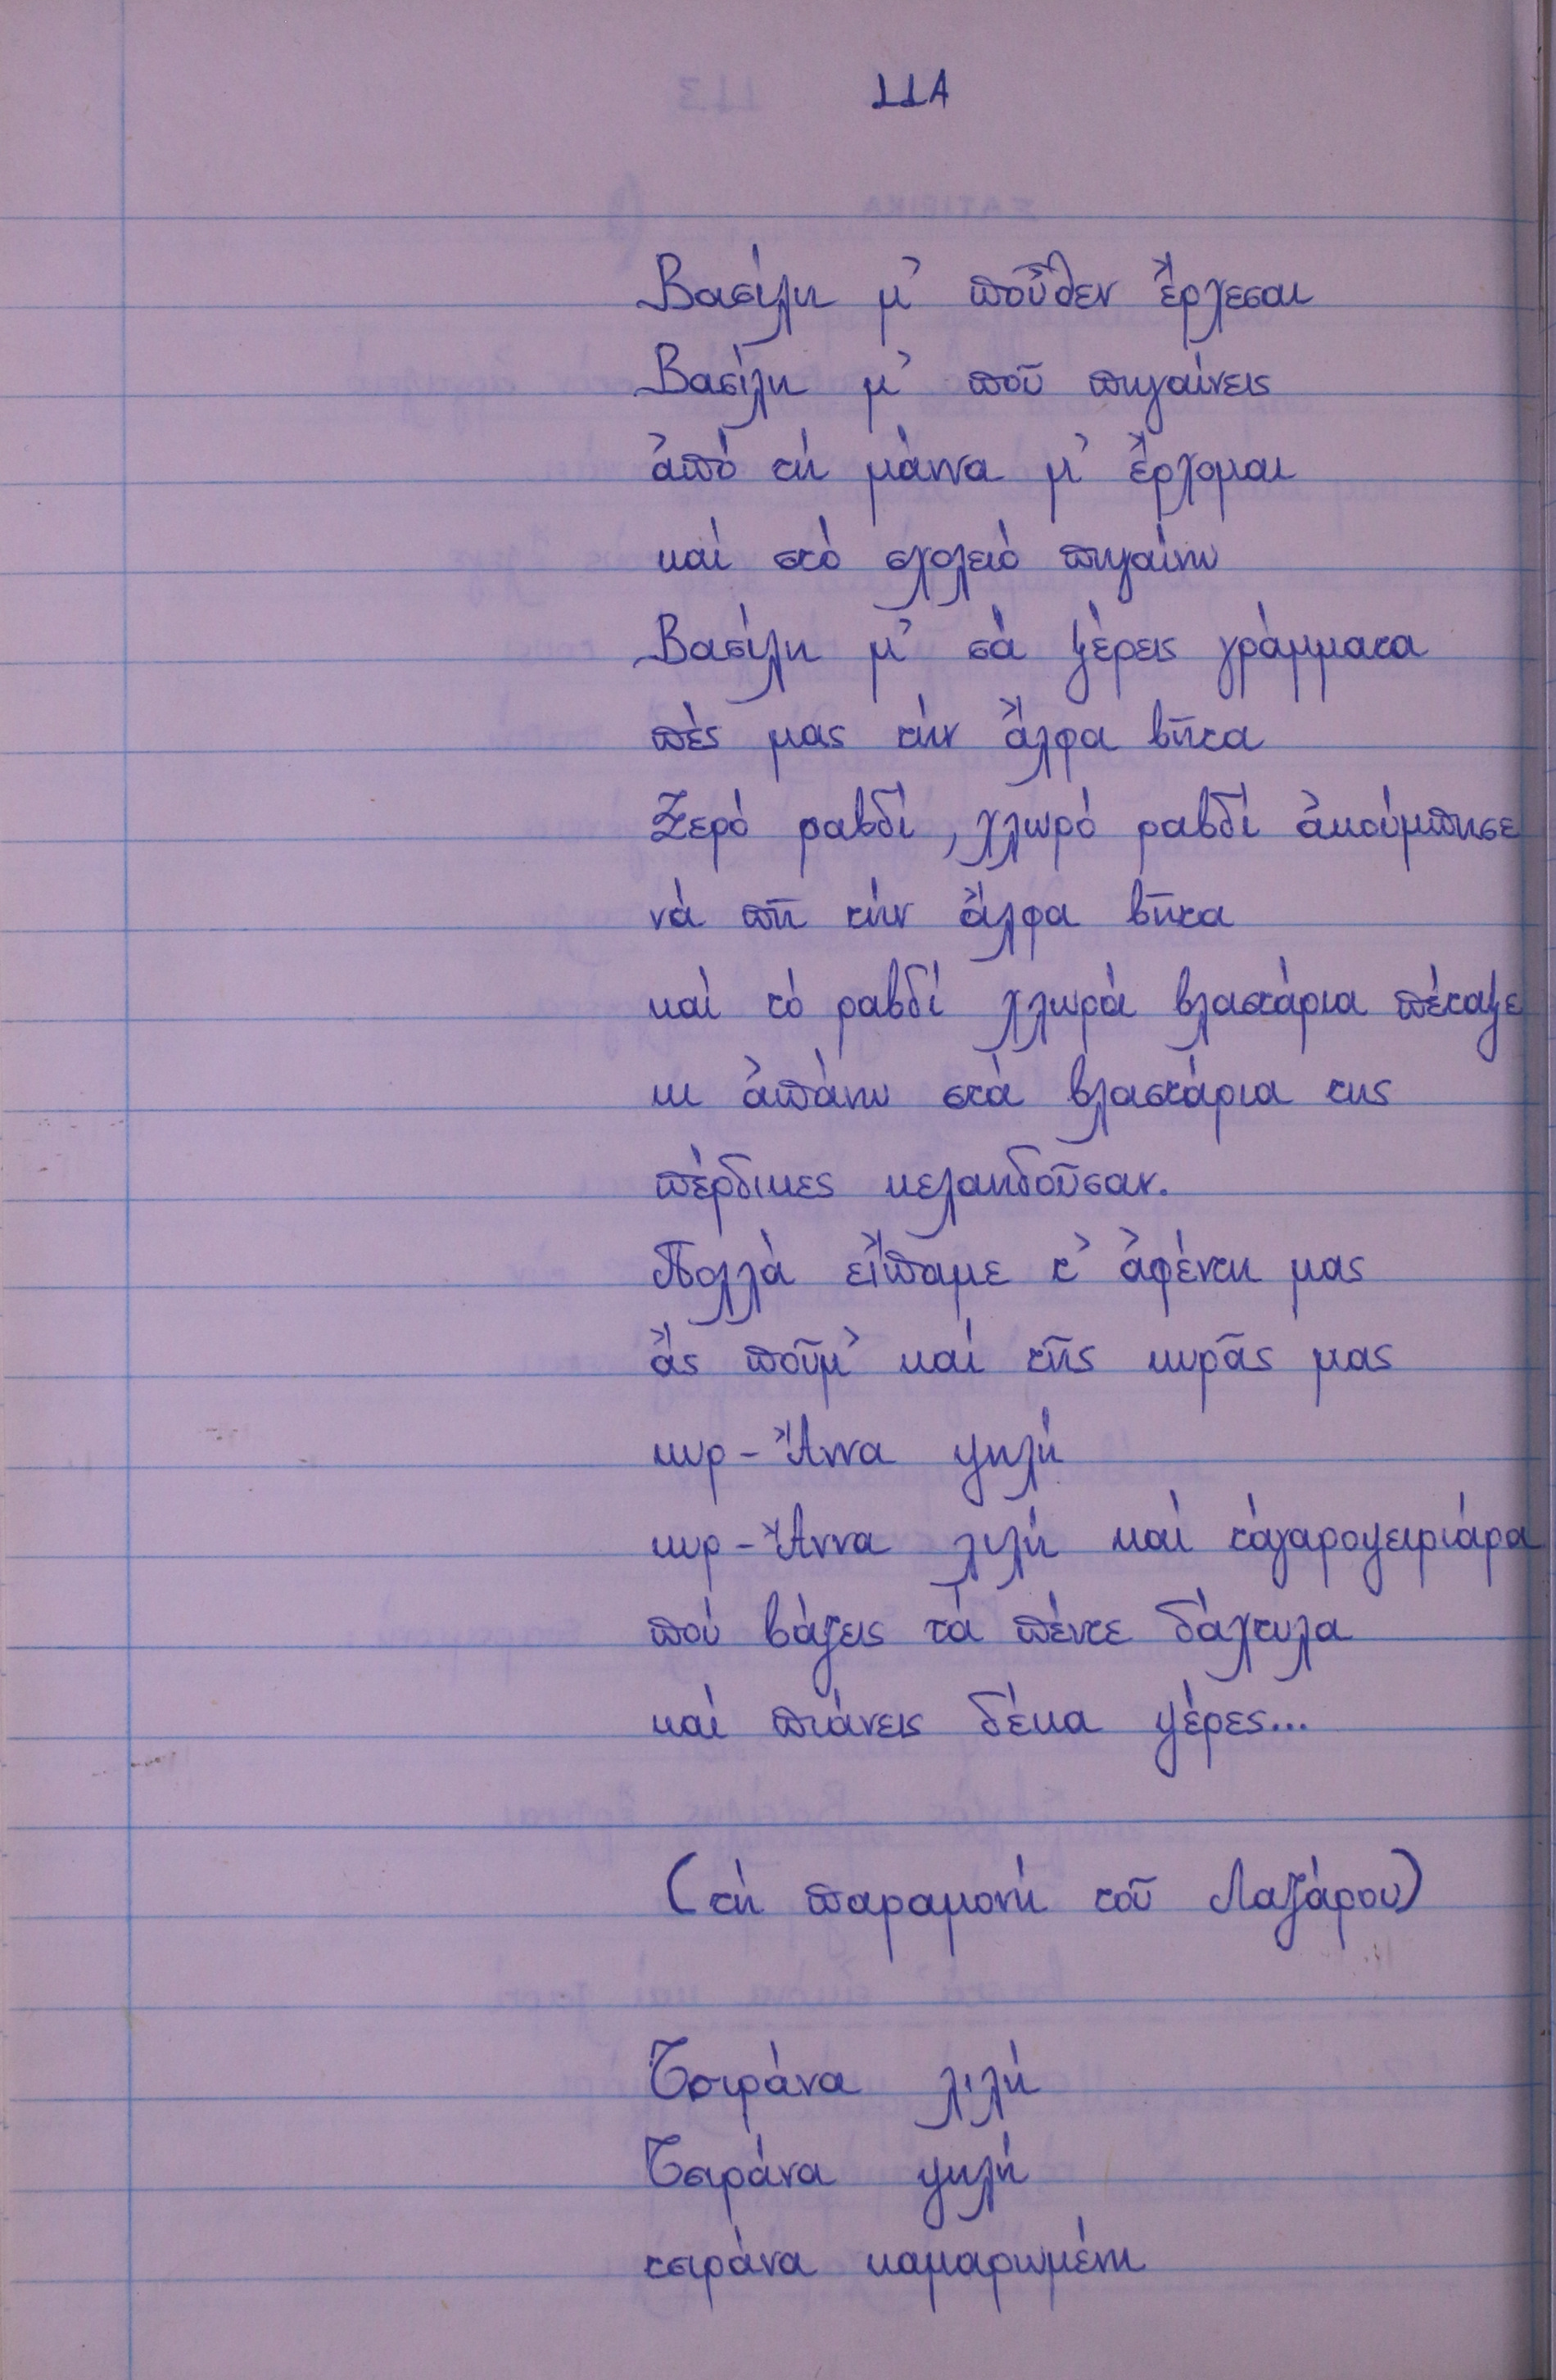 114
Βασίλη μ' ποῦθεν ἔρχεσαι
Βασίλη μ' ποῦ πηγαίνεις
ἀπό τή μάννα μ' ἔρχομαι
καί στό σχολειό πηγαίνω
Βασίλη μ' σά ξέρεις γράμματα
πές μας τήν ἄλφα βῆτα
Ξερό ραβδί, χλωρό ραβδί ἀκούμπησε
νά πῆ τήν ἄλφα βῆτα
καί τό ραβδί χλωρά βλαστάρια πέταξε
κι ἀπάνω στά βλαστάρια της
πέρδικες κελαηδοῦσαν.
Πολλά εἴπαμε τ' ἀφέντη μας
ἄς ποῦμ' καί τῆς κυρᾶς μας
κυρ-Ἄννα ψηλή
κυρ-Ἄννα λιλή καί τάγαροψειριάρα
πού βάζεις τά πέντε δάχτυλα
καί πιάνεις δέκα ψέρες...
(τή παραμονή τοῦ Λαζάρου)
Τσιράνα λιλή
Τσιράνα ψηλή
τσιράνα καμαρωμένη